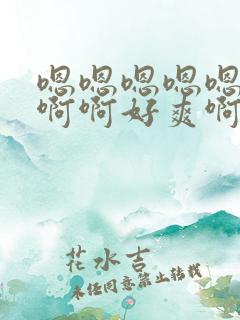 嗯嗯嗯嗯嗯
啊啊好爽啊
花水吉
未经同意禁止转载